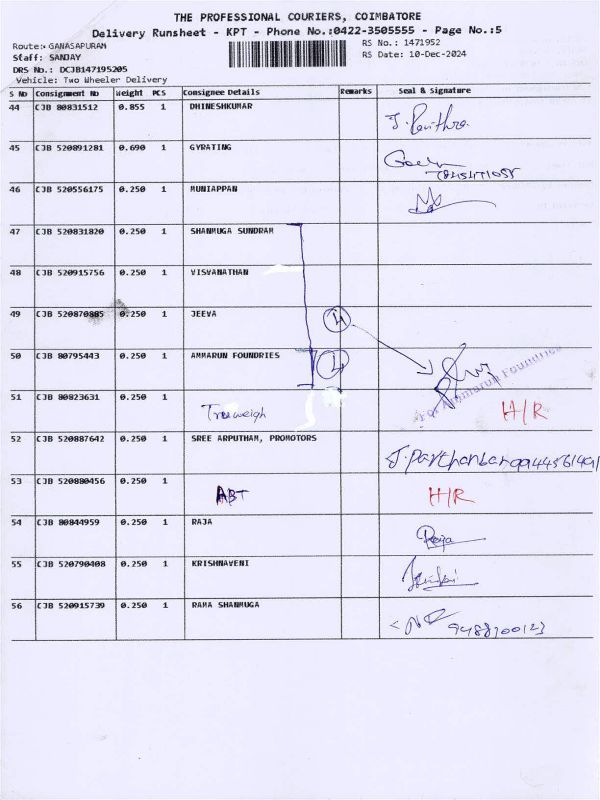 THE PROFESSIONAL COURIERS, COIMBATORE
Delivery Runsheet - KPT - Phone No.:0422-3505555 - Page No.:5
Route:- GANASAPURAM
RS No. : 1471952
Staff: SANJAY
RS Date: 10-Dec-2024
DRS No.: DCJB147195205
Vehicle: Two Wheeler Delivery
S No Consignment No Weight PCS Consignee Details Remarks Seal & Signature
44 CJB 80831512 0.855 1 DHINESHKUMAR
45 CJB 520891281 0.690 1 GYRATING
46 CJB 520556175 0.250 1 MUNIAPPAN
47 CJB 520831820 0.250 1 SHANMUGA SUNDRAM
48 CJB 520915756 0.250 1 VISVANATHAN
49 CJB 520870885 0.250 1 JEEVA
4
50 CJB 80795443 0.250 1 AMMARUN FOUNDRIES 4
For Ammarun Foundries
51 CJB 80823631 0.250 1 Trueweigh H/R
52 CJB 520887642 0.250 1 SREE ARPUTHAM, PROMOTORS
53 CJB 520880456 0.250 1 ABT H/R
54 CJB 80844959 0.250 1 RAJA Raja
55 CJB 520790408 0.250 1 KRISHNAVENI
56 CJB 520915739 0.250 1 RAMA SHANMUGA